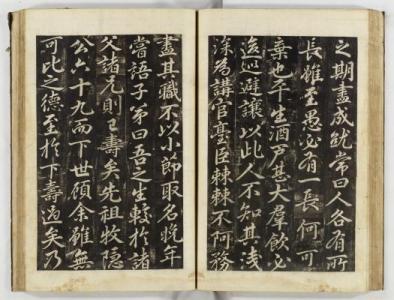 之期盡成就常曰人各有所
長雖至愚必有一長何可
棄也平生酒戶甚大羣飲必
逡巡避讓以此人不知其淺
深為講官臺臣棘棘不阿務
盡其職不以小節取名晚年
嘗語子弟曰吾之生較於諸
父諸兄則已壽矣先祖牧隱
公六十九而下世顧余雖無
可比之德至於下壽過矣乃